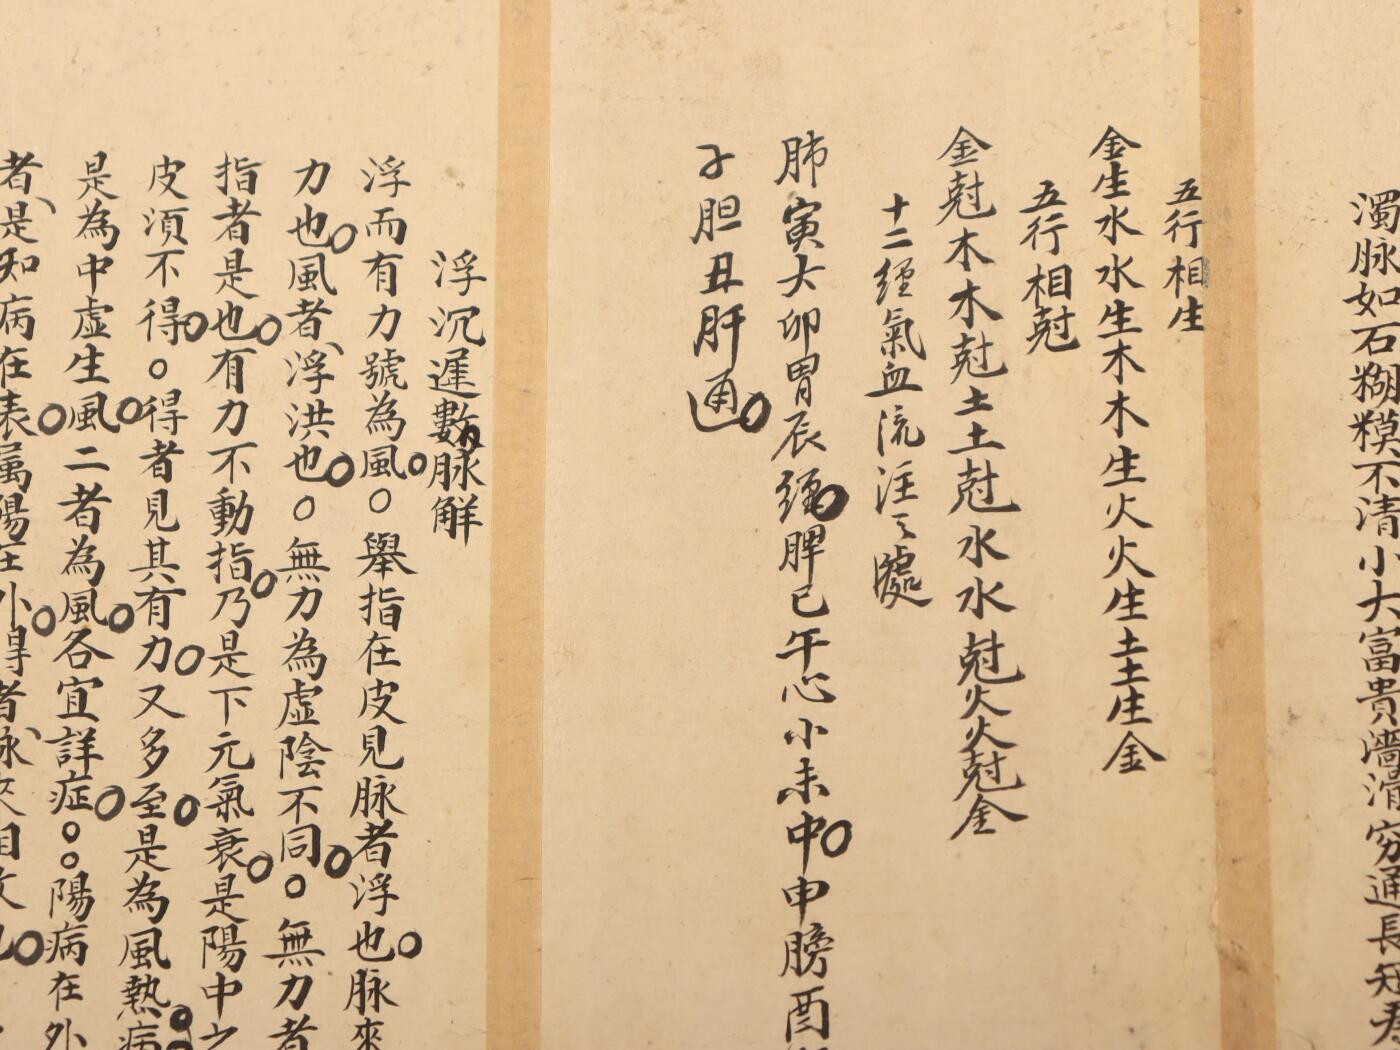 濁脉如石糊糢不清小大富貴濇滑窮通長短
五行相生
金生水水生木木生火火生土土生金
五行相尅
金尅木木尅土土尅水水尅火火尅金
十二經氣血流注之處
肺寅大卯胃辰經脾巳午心小未中申膀酉
子胆丑肝通
浮沉遲數脉解
浮而有力號為風。舉指在皮見脉者浮也脉來
力也風者、浮洪也。無力為虛陰不同。無力者
指者是也有力不動指乃是下元氣衰是陽中之
皮須不得。得者見其有力又多至是為風熱病
是為中虛生風二者為風各宜詳症。。陽病在外
者、是知病在表属陽在外得者、脉來